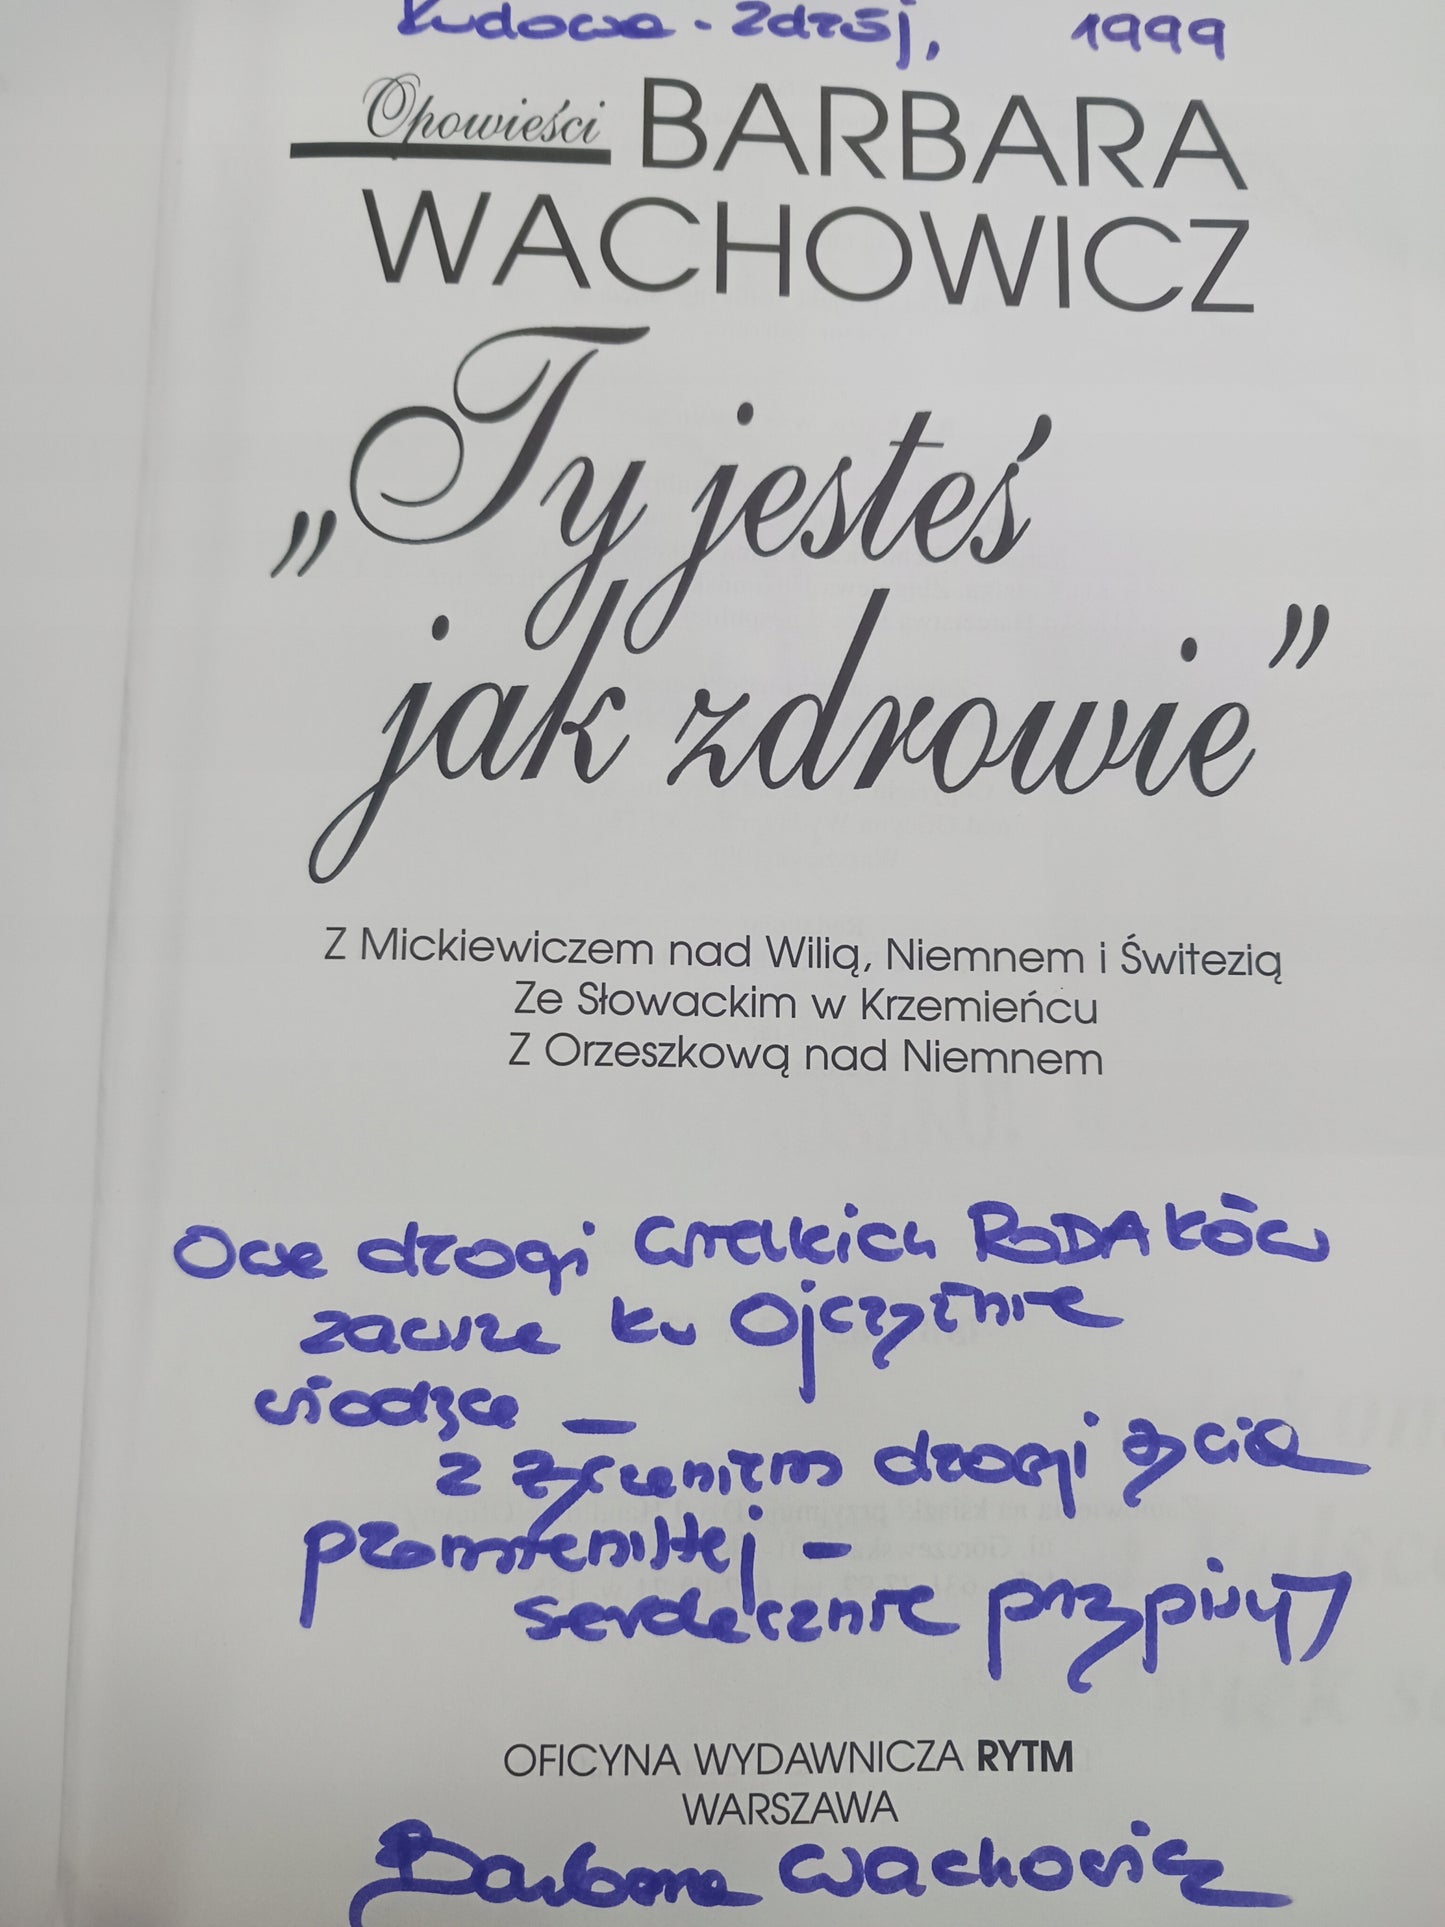 Kudowa-Zdrój, 1999
Opowieści BARBARA
WACHOWICZ
„Ty jesteś
jak zdrowie”
Z Mickiewiczem nad Wilią, Niemnem i Świtezią
Ze Słowackim w Krzemieńcu
Z Orzeszkową nad Niemnem
Owe drogi wielkich RODAków
zawsze ku Ojczyźnie
wiodące –
z życzeniem drogi życia
promienistej –
serdecznie przypisuję
OFICYNA WYDAWNICZA RYTM
WARSZAWA
Barbara Wachowicz